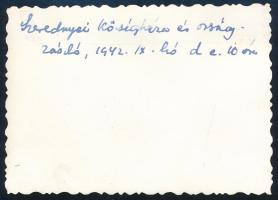 Szerednyei Községháza és ország-
zászló, 1942. IX. hó d. e. 10 óra